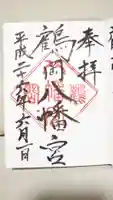 奉拝
鶴岡八幡宮
平成二十六年六月一日